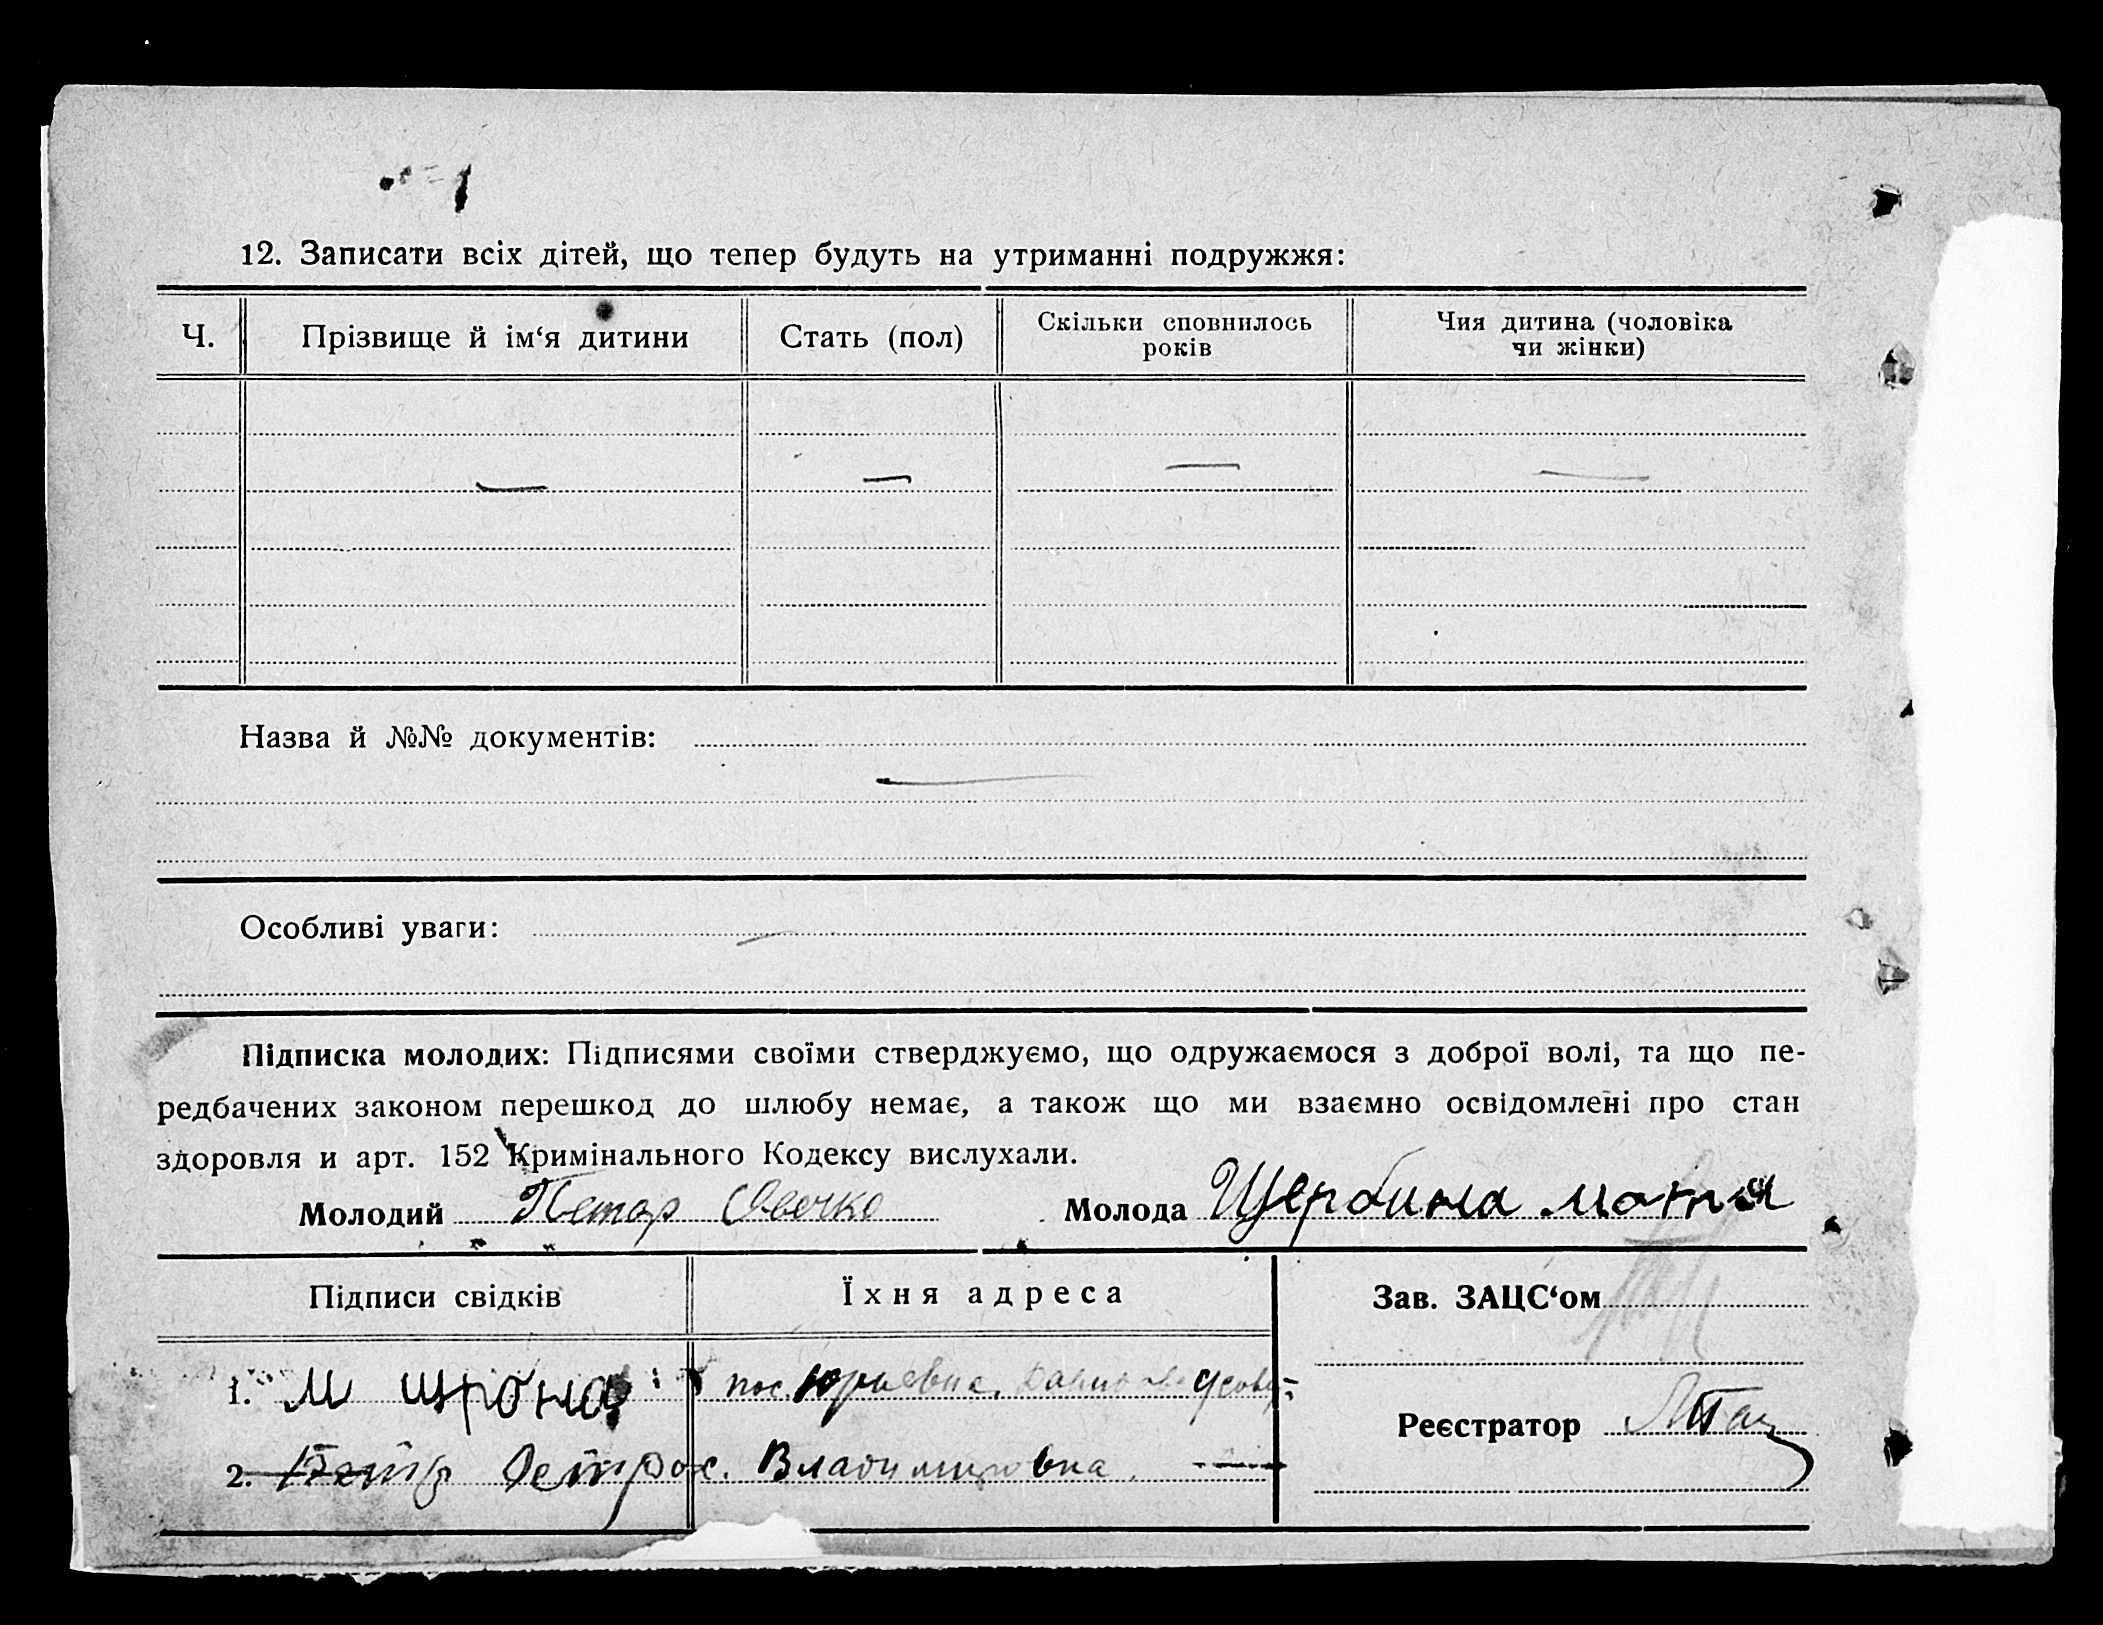 12. Записати всіх дітей, що тепер будуть на утриманні подружжя:
Ч. Прізвище й ім‘я дитини Стать (пол) Скільки сповнилось років Чия дитина (чоловіка чи жінки)
Назва й №№ документів:
Особливі уваги:
Підписка молодих: Підписями своїми стверджуємо, що одружаємося з доброї волі, та що пе-
редбачених законом перешкод до шлюбу немає, а також що ми взаємно освідомлені про стан
здоровля и арт. 152 Кримінального Кодексу вислухали.
Молодий Петор Овечко Молода Щербина
Підписи свідків Їхня адреса Зав. ЗАЦС‘ом
1. М пос.
Реєстратор
2. Владимировка